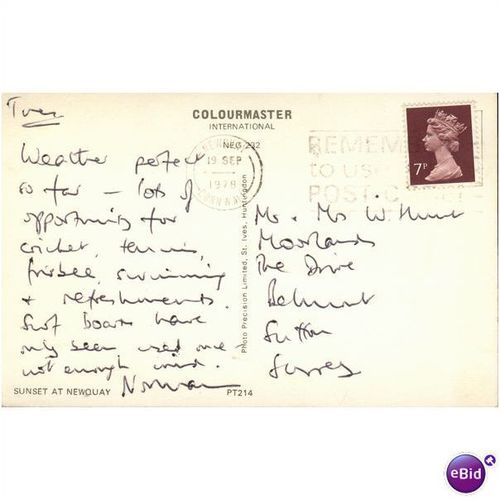 Tues
COLOURMASTER
INTERNATIONAL
NEG 232
19 SEP
1978
REMEMBER
TO USE
POST C
7P
Weather perfect
so far – lots of
opportunity for
cricket, tennis,
frisbee, swimming
+ refreshments.
Surf boards have
only been used once –
not enough wind.
Norman
Mr. Mrs W. Hunt
Moorlands
The Drive
Belmont
Sutton
Surrey
Photo Precision Limited, St. Ives, Huntingdon
SUNSET AT NEWQUAY
PT214
eBid